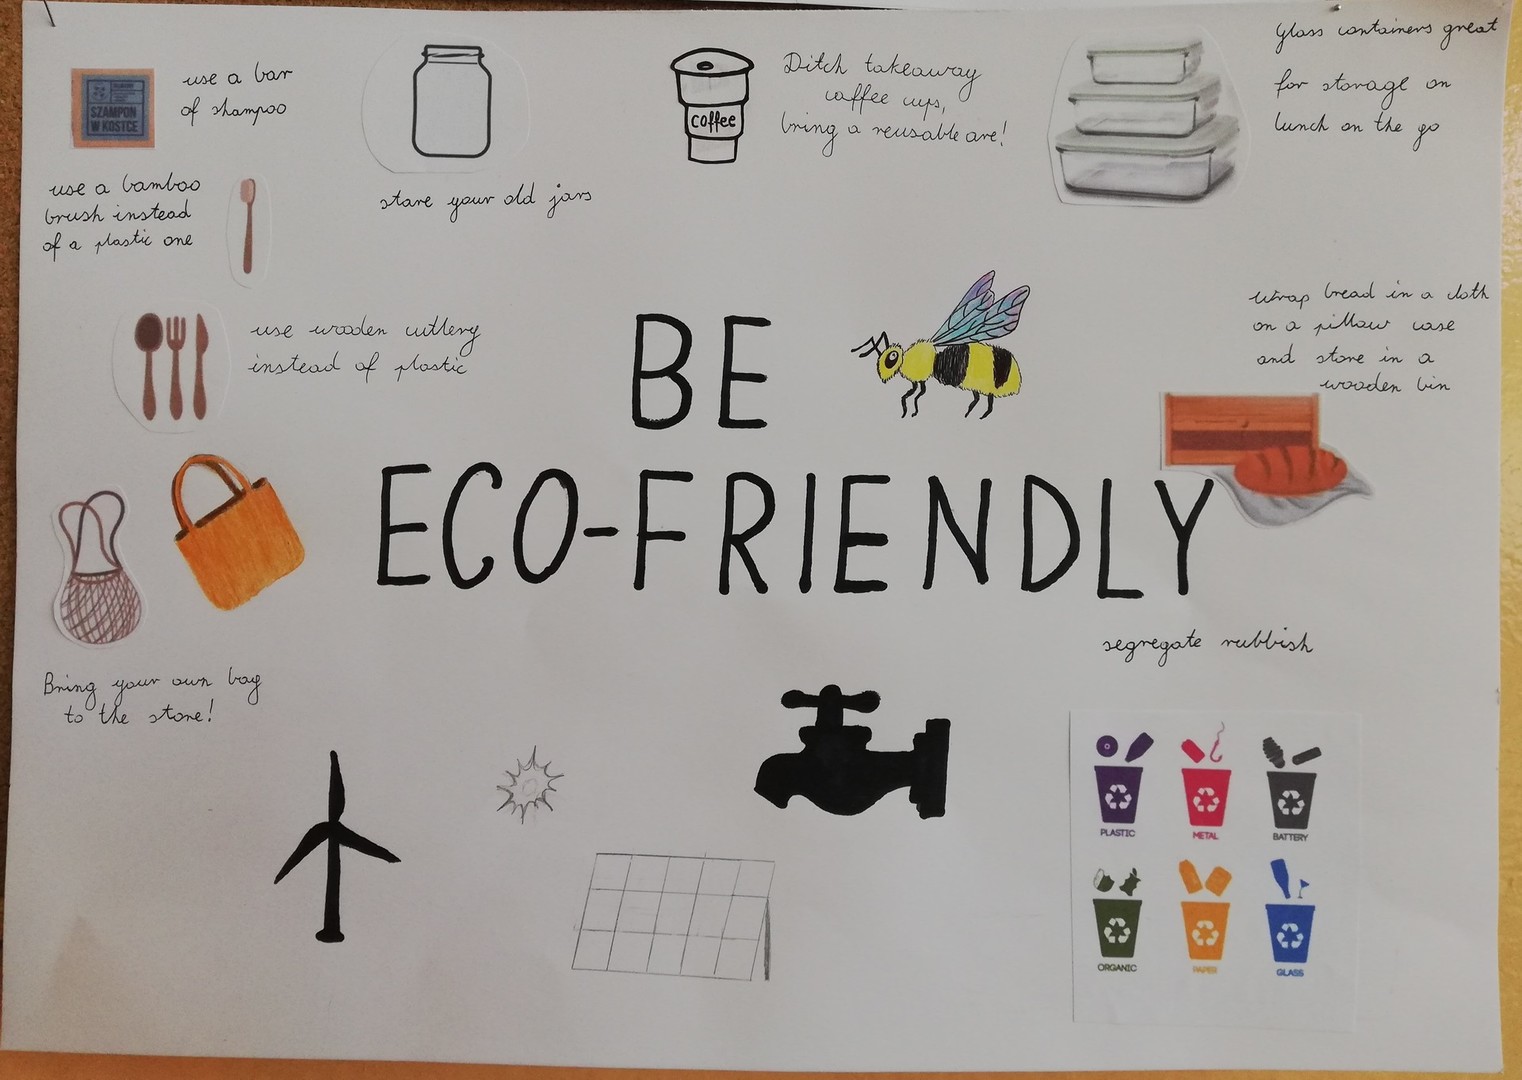 use a bar
of shampoo
SZAMPON
W KOSTCE
use a bamboo
brush instead
of a plastic one
store your old jars
coffee
Ditch takeaway
coffee cups,
bring a reusable one!
Glass containers great
for storage on
lunch on the go
use wooden cutlery
instead of plastic
BE
ECO-FRIENDLY
wrap bread in a cloth
on a pillow case
and store in a
wooden bin
Bring your own bag
to the store!
segregate rubbish
PLASTIC
METAL
BATTERY
ORGANIC
PAPER
GLASS